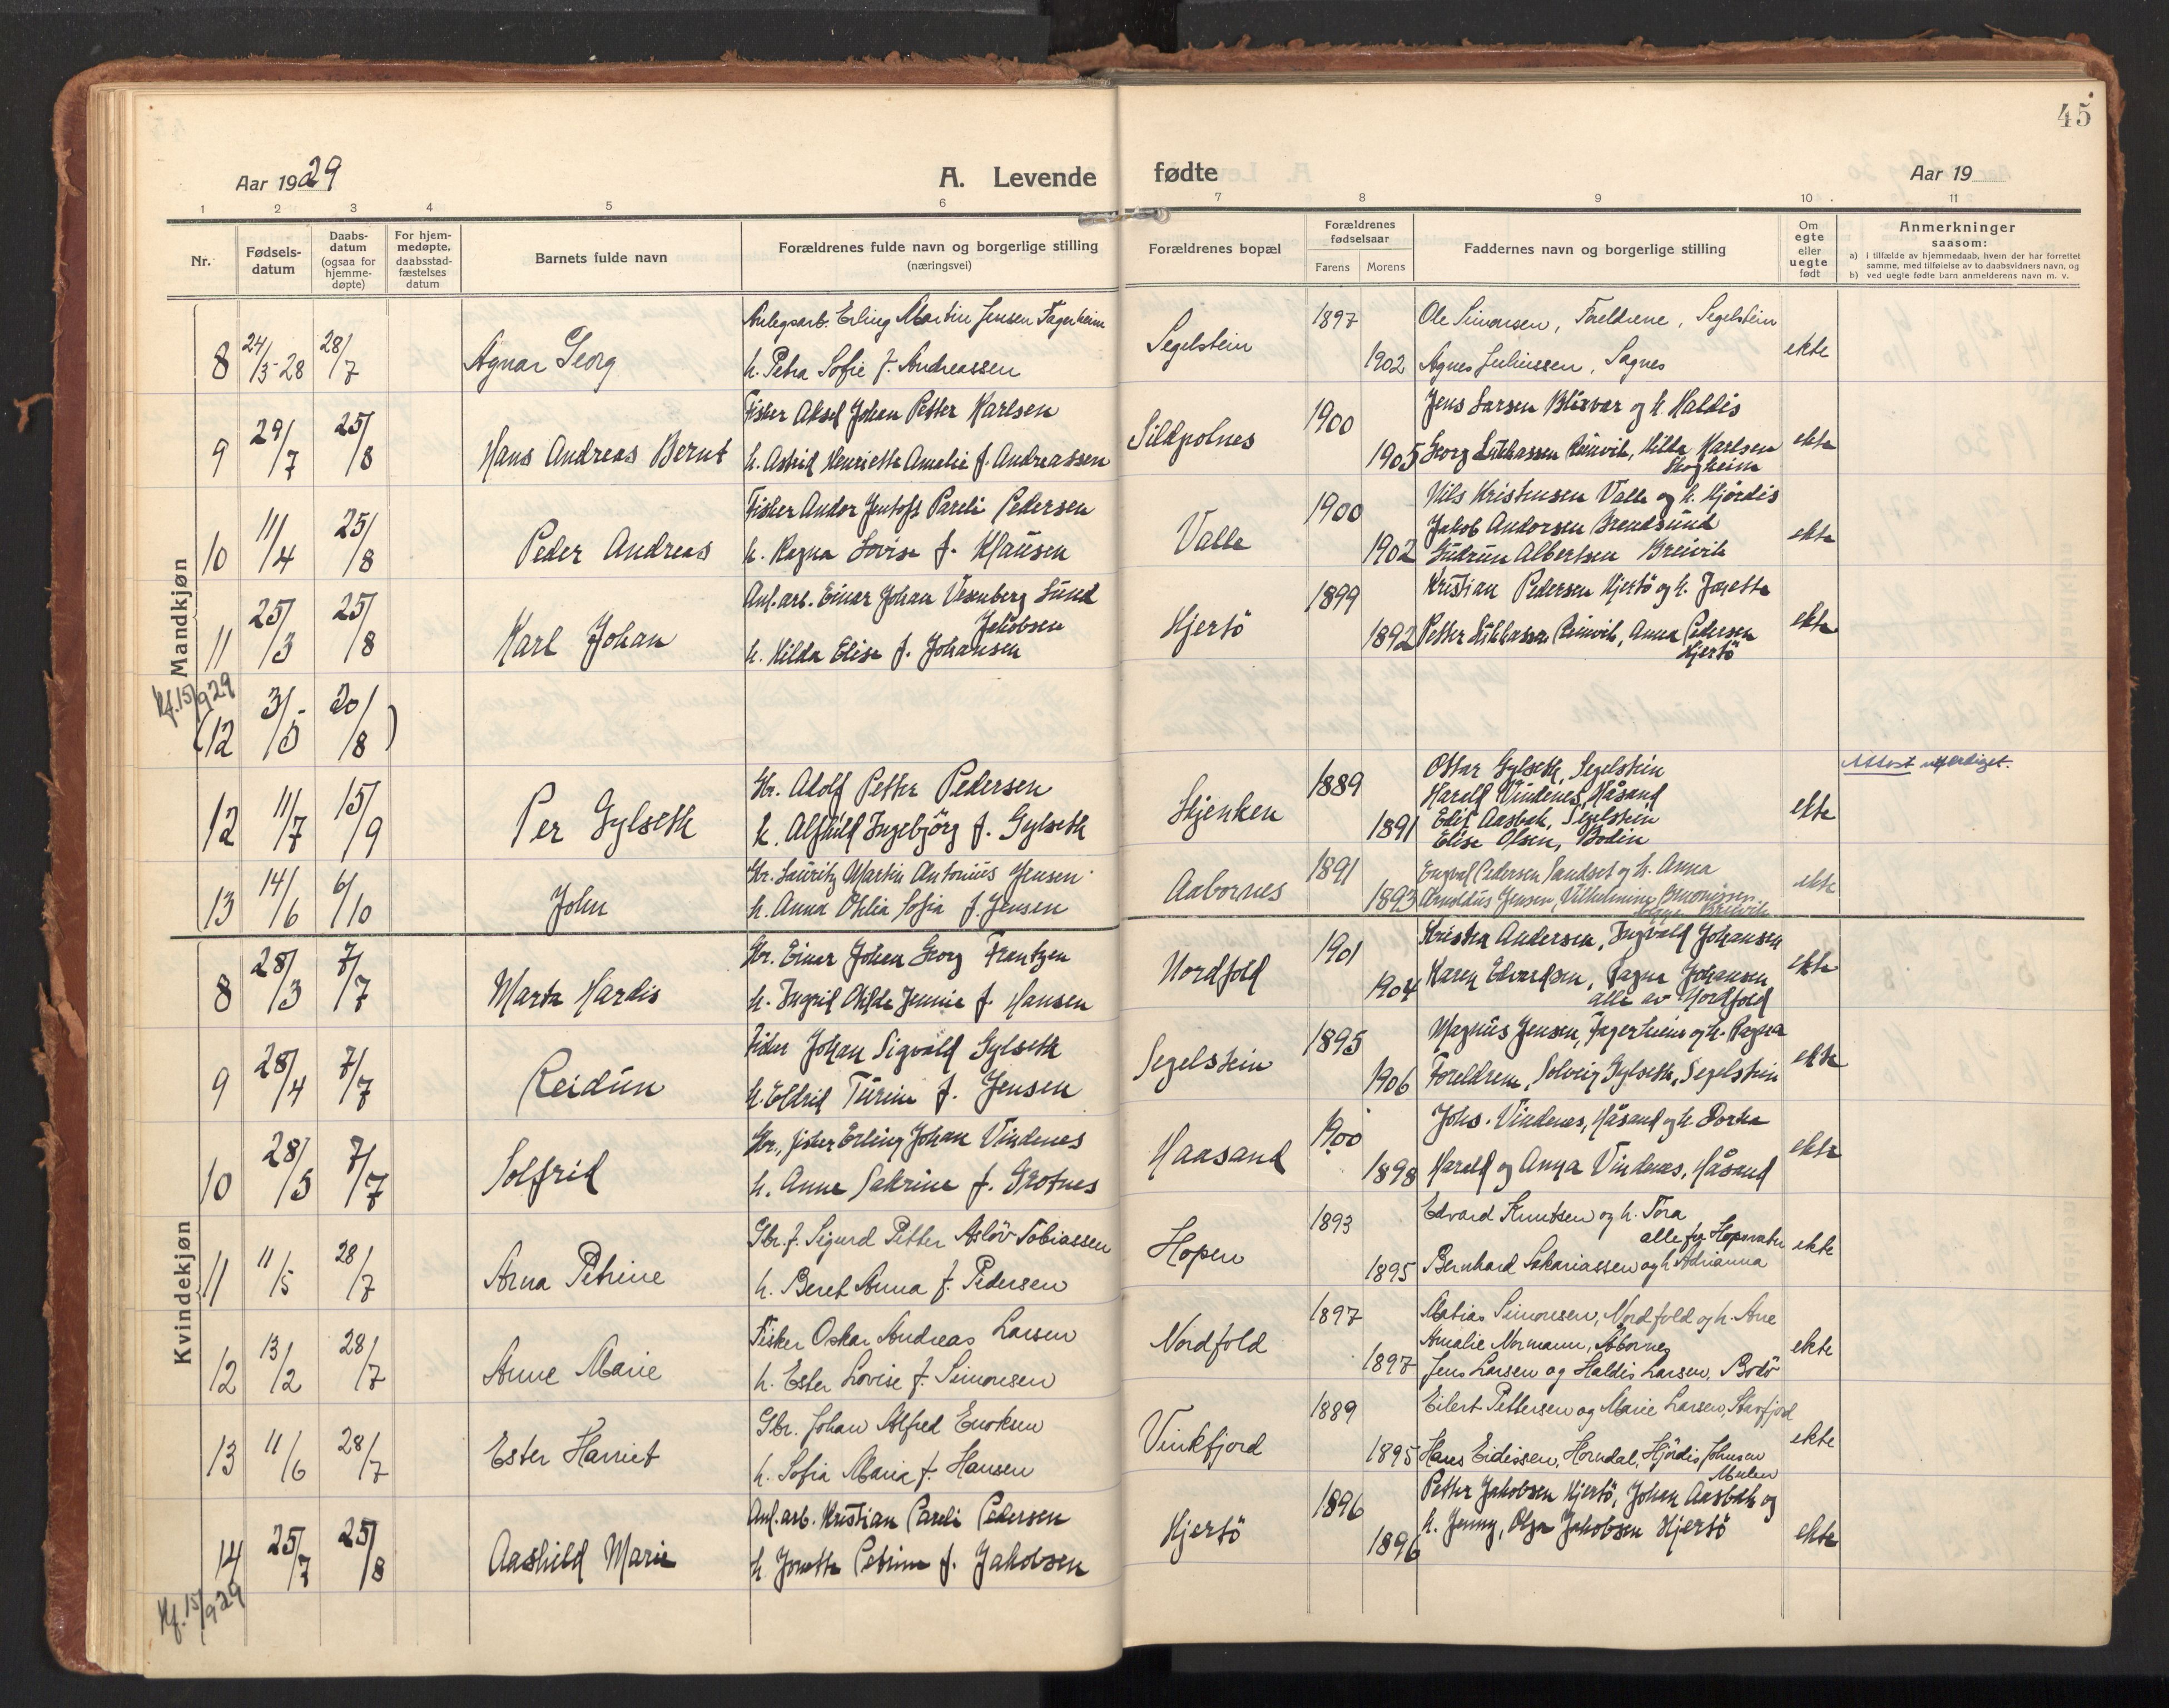 45
Aar 1929 A. Levende fødte Aar 19
1 2 3 4 5 6 7 8 9 10 11
Nr. Fødsels-datum Daabs-datum (ogsaa for hjemme-døpte) For hjem-medøpte, daabsstad-fæstelses datum Barnets fulde navn Forældrenes fulde navn og borgerlige stilling (næringsvei) Forældrenes bopæl Forældrenes fødselsaar Farens Morens Faddernes navn og borgerlige stilling Om egte eller uegte født Anmerkninger saasom:
a) i tilfælde av hjemmedaab, hvem der har forrettet samme, med tilføielse av to daabsvidners navn, og
b) ved uegte fødte barn anmelderens navn m. v.
Mandkjøn
Anlegsarb. Erling Martin Jensen Fagerheim 1897 Ole Simonsen, Foreldrene, Segelstein
8 24/5-28 28/7 Agnar Georg h. Petra Sofie f. Andreassen Segelstein 1902 Agnes Juliussen, Sagnes ekte
Fisker Aksel Johan Petter Karlsen 1900 Jens Larsen Blixvær og h. Haldis
9 29/7 25/8 Hans Andreas Bernt h. Astrid Henriette Amalie f. Andreassen Sildpolnes 1905 Georg Lukkassen Reinvik, Hilda Karlsen ekte
Skogheim
Fisker Andor Jentoft Pareli Pedersen 1900 Nils Kristensen Valle og h. Hjördis
Jakob Andorsen Brendsund
10 11/4 25/8 Peder Andreas h. Ragna Lovise f. Klausen Valle 1902 Gudrun Albertsen Breivik ekte
Anl. arb. Einar Johan Vesenberg Lund 1899 Kristian Pedersen Hjertö og h. Jonette
Jakobsen
11 25/3 25/8 Karl Johan h. Hilda Elise f. Johansen Hjertö 1892 Petter Lukkassen Reinvik, Anna Pedersen ekte
Hjertö
Kf. 15/9 29
(12 3/5 - 20/8)
Gbr. Adolf Petter Pedersen 1889 Ottar Gylseth, Segelstein Attest utferdiget.
Harald Vindenes, Håsand
12 11/7 15/9 Per Gylseth h. Alfhild Ingebjörg f. Gylseth Skjenken 1891 Edit Aasbak, Segelstein ekte
Elise Olsen, Bodin
Gbr. Lauritz Martin Antonius Jensen 1891 Engval Pedersen Sandset og h. Anna
13 14/6 6/10 John h. Anna Otilia Sofia f. Jensen Aabornes 1893 Arnoldus Jensen, Vilhelmine ekte
Breivik
Kvindekjøn
Gbr. Einar Johan Georg Frantzen 1901 Kristen Andersen, Ingvald Johansen
8 28/3 7/7 Marta Hardis h. Ingrid Otilde Jennie f. Hansen Nordfold 1904 Karen Edvardsen, Ragna Johansen ekte
alle av Nordfold
Fisker Johan Sigvald Gylseth 1895 Magnus Jensen, Fagerheim og h. Ragna
9 28/4 7/7 Reidun h. Eldrid Turine f. Jensen Segelstein 1906 Foreldrene, Solveig Gylseth, Segelstein ekte
Gbr., fisker Erling Johan Vindenes 1900 Johs. Vindenes, Håsand og h. Dortea
10 28/5 7/7 Solfrid h. Anne Sakrine f. Grotnes Haasand 1898 Harald og Anna Vindenes, Håsand ekte
Gbr. f. Sigurd Petter Asløv Tobiassen 1893 Edvard Knutsen og h. Tora
11 11/5 28/7 Arna Petrine h. Beret Anna f. Pedersen Hopen 1895 Bernhard Sakariassen og h Adrianna ekte
Fisker Oskar Andreas Larsen 1897 Matias Simonsen, Nordfold og h. Ane
Amalie Normann, Åbornes
12 13/2 28/7 Anne Marie h. Ester Lovise f. Simonsen Nordfold 1897 Jens Larsen og Haldis Larsen, Bodö ekte
Gbr. Johan Alfred Enoksen 1889 Eilert Pettersen og Marie Larsen, Starfjord
13 11/6 28/7 Ester Harriet h. Sofia Maria f. Hansen Vinkfjord 1895 Hans Eidissen, Horndal, Hjördis Johnsen ekte
Mulen
Anl. arb. Kristian Pareli Pedersen 1896 Petter Jakobsen Hjertö, Johan Aasbak og
14 25/7 25/8 Aashild Marie h. Jonette Petrine f. Jakobsen Hjertö 1896 h. Jenny, Olga Jakobsen Hjertö ekte
Kf. 15/9 29